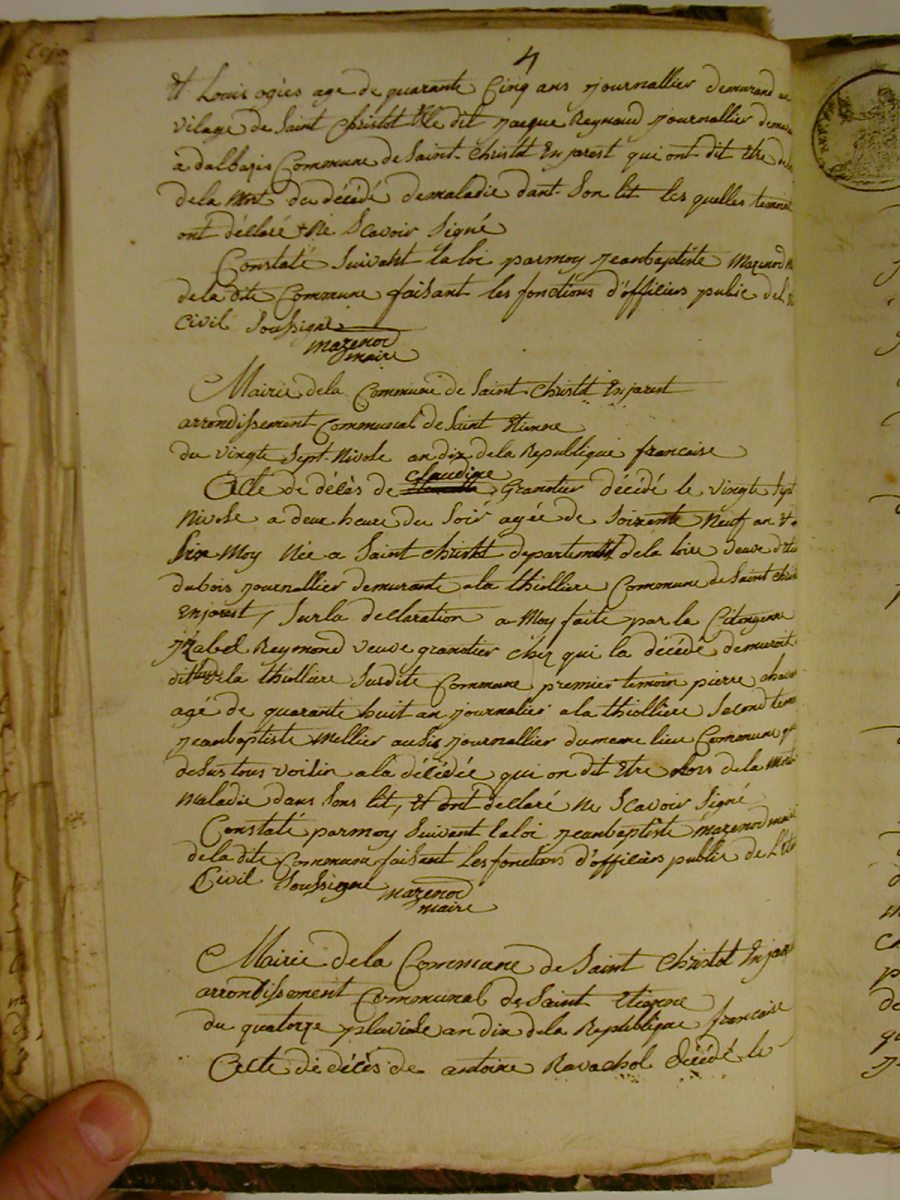 4
et Louis ogies age de quarante Cinq ans journallier demurand au
vilage de Saint Christot Et le dit jacque Reynaud journallier demura
a dalbazis Commune de Saint Christot En jarest qui ont dit Etre
de la Mort du décédé de maladie dant Son lit les quelles temoins
ont déclaré Ne Scavoir Signé
Constaté Suivant la loi par moy jean baptiste Mazenod
de la dite Commune faisant les fonctions d'officiers public de l'
Civil Soussigné
mazenod
maire
Mairie de la Commune de Saint Christot En jarest
arrondissement Communal de Saint Etienne
du vingte Sept Nivose an dix de la Republique francaise
claudine
Acte de décès de Granotier décédé le vingte Sept
Nivose a deux heure du Soir agée de Soizente Neuf an et
Six Moy Née a Saint Christot departement de la loire veuve
dubois journallier demurant a la thiolliere Commune de Saint christ
En jarest, Sur la declaration a Moy faite par la Citoyenne
jzabel Reymond veuve granotier chez qui la décédé demuroit
dit lieu de la thiolliere Susdite Commune premier temoin pierre
age de quarante huit an journalier a la thiolliere Second temo
jean baptiste Mellier ausis journallier du meme lieu Commune
desus tous voisin a la décédée qui on dit Etre Mors de la Mort
Maladie dans Sons lit, Et ont déclaré Ne Scavoir Signé
Constaté par moy Suivant la loi jean baptiste mazenod maire
de la dite Commune faisant les fonctions d'officiers public de L'Etat
Civil Soussigne mazenod
maire
Mairie de la Commune de Saint Christot En jare
arrondissement Communal de Saint Etienne
du quatorze pluviose an dix de la Republique francaise
Acte de décès de antoine Ravachol décédé le